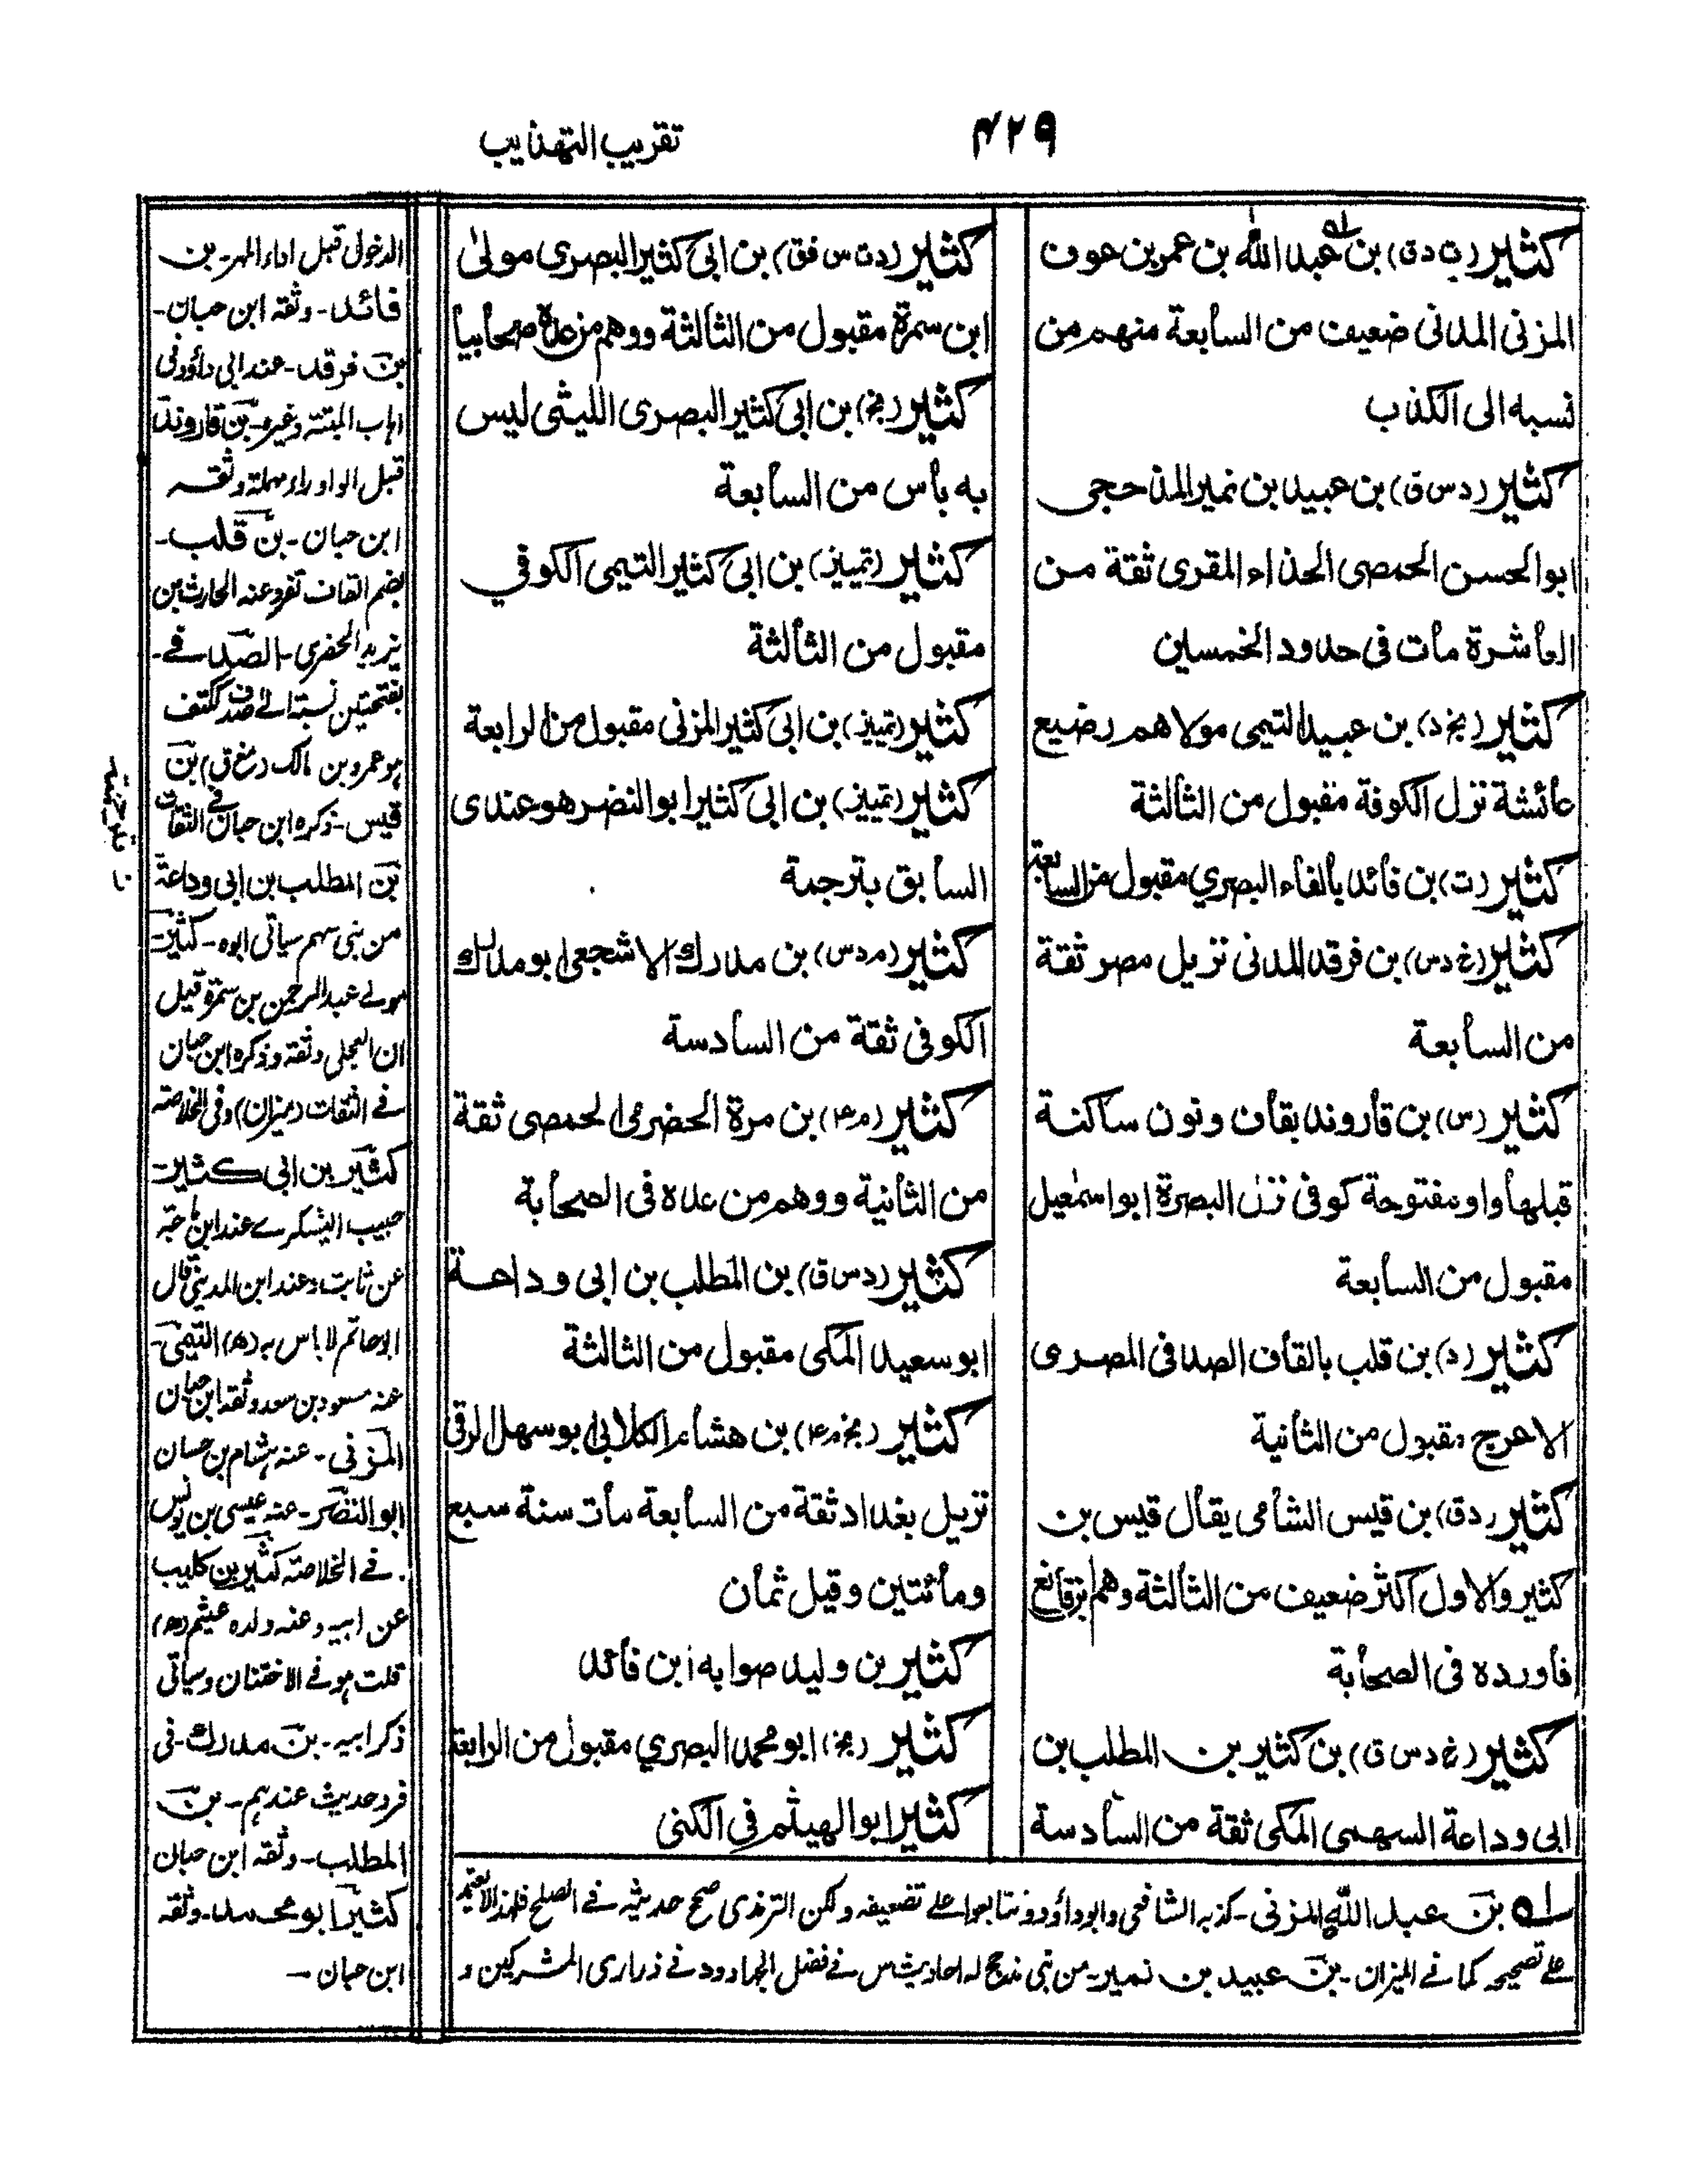 ۴۲۹
تقریب التهذیب
کثیر (ر دت ق) بن عبد الله بن عمرو بن عوف
المزنی المدنی ضعیف من السابعة منهم من
نسبه الی الکذب
کثیر (د س ق) بن عبید بن نمیر المذحجی
ابو الحسن الحمصی الحذاء المقری ثقة من
العاشرة مات فی حدود الخمسین
کثیر (بخ د) بن عبید التیمی مولاهم رضیع
عائشة نزل الکوفة مقبول من الثالثة
کثیر (ت) بن فائد بالفاء البصري مقبول من السابعة
کثیر (غ د س) بن فرقد المدنی نزیل مصر ثقة
من السابعة
کثیر (س) بن قاروندا بقاف ونون ساکنة
قبلها واو مفتوحة کوفی نزل البصرة ابو اسمٰعیل
مقبول من السابعة
کثیر (د) بن قلب بالقاف الصدافی المصری
الاعرج مقبول من الثانیة
کثیر (د ق) بن قیس الشامی یقال قیس بن
کثیر والاول اکثر ضعیف من الثالثة وهم ابن قانع
فاورده فی الصحابة
کثیر (غ د س ق) بن کثیر بن المطلب بن
ابی وداعة السهمی المکی ثقة من السادسة
کثیر (د ت س فق) بن ابی کثیر البصری مولیٰ
ابن سمرة مقبول من الثالثة ووهم من عده صحابیا
کثیر (بخ) بن ابی کثیر البصری اللیثی لیس
به بأس من السابعة
کثیر (تمییز) بن ابی کثیر التیمی الکوفي
مقبول من الثالثة
کثیر (تمییز) بن ابی کثیر المزنی مقبول من الرابعة
کثیر (تمییز) بن ابی کثیر ابو النضر هو عندی
السابق بترجمة
کثیر (مد س) بن مدرك الاشجعی ابو مدرك
الکوفی ثقة من السادسة
کثیر (ر ۴) بن مرة الحضرمی الحمصی ثقة
من الثانیة ووهم من عده فی الصحابة
کثیر (د س ق) بن المطلب بن ابی وداعة
ابو سعید المکی مقبول من الثالثة
کثیر (بخ م ۴) بن هشام الکلابی ابو سهل الرقی
نزیل بغداد ثقة من السابعة مات سنة سبع
ومائتین وقیل ثمان
کثیر بن ولید صوابه ابن فائد
کثیر (بخ) ابو محمد البصري مقبول من الرابعة
کثیر ابو الهیثم فی الکنی
الدخول قبل اداء المهر - بن
فائد - وثقه ابن حبان -
بن فرقد - عند ابی داؤد فی
بن قاروندا
قبل الواو راء مهملة وثقه
ابن حبان - بن قلب -
بضم القاف تفرد عنه الحارث بن
یزید الحضری - الصدافے -
بفتحتین نسبة الے صدف ککتف
ہو عمرو بن مالک بن
قیس - ذکره ابن حبان فے الثقات
بن المطلب بن ابی وداعة
من بنی سهم سیاتی ابوه - کثیر
مولے عبد الرحمن بن سمرة قیل
ان العجلی وثقه وذکره ابن حبان
فے الثقات (میزان) وفی الخلاصة
کثیر بن ابی کثیر
حبیب الیشکرے عند ابن ماجة
عن ثابت وعند ابن المدینی قال
ابو حاتم لا باس به (ھ) التیمی -
عنه مسعود بن سعد وثقه ابن حبان
المزنی - عنه ہشام بن حسان
ابو النضر - عنه عیسی بن یونس
فے الخلاصة کثیر بن کلیب
عن ابیه وعنه ولده عثیم (ھ)
قلت ہو فے الاختنان وسیاتی
ذکر ابیه - بن مدرك - فی
فرد حدیث عندہم - بن
المطلب - وثقه ابن حبان
کثیر ابو محمد - وثقه
ابن حبان -
لـه بن عبد الله المزنی - کذبه الشافعی وابو داؤد وتتابعوا علے تضعیفه ولکن الترمذی صحح حدیثه فے الصلح فلهذا لا یعتمد
علے تصحیحه کما فے المیزان - بن عبید بن نمیر - من بنی مذحج له احادیث فے فضل الجهاد ود فے ذراری المشرکین و